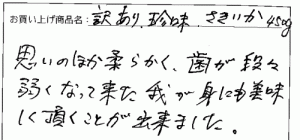 お買い上げ商品名: 訳あり、珍味、さきいか 450g
思いのほか柔らかく、歯が段々
弱くなって来た我が身にも美味
しく頂くことが出来ました。